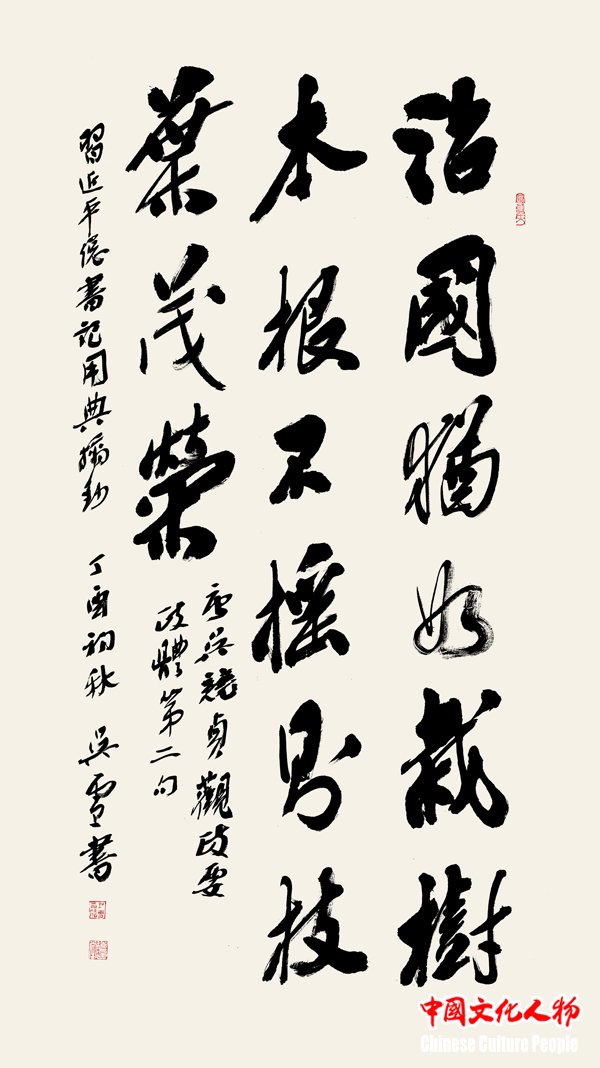 治國猶如栽樹
本根不搖則枝
葉茂榮
唐吳兢貞觀政要
政體第二句
習近平總書記用典摘鈔 丁酉初秋 吳雪書
中國文化人物
Chinese Culture People